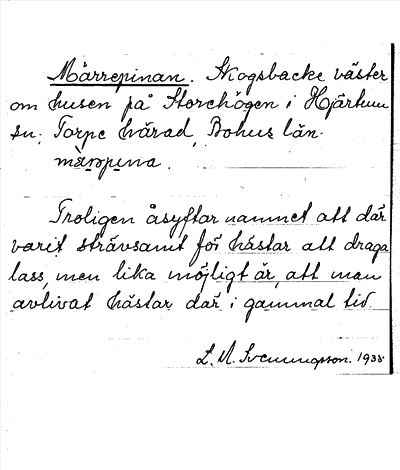 Märrepinan. Skogsbacke väster
om husen på Storehögen i Hjärtum
sn; Torpe härad, Bohus län.
Troligen åsyftar namnet att där
varit strävsamt för hästar att draga
lass, men lika möjligt är, att man
avlivat hästar där i gammal tid